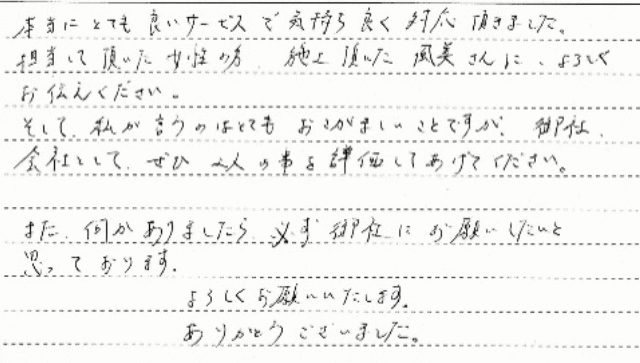 本当にとても良いサービスで気持ち良く対応頂きました。
担当して頂いた女性の方、施工頂いた風美さんに、よろしく
お伝えください。
そして、私が言うのはとてもおこがましいことですが、御社、
会社として、ぜひ二人の事を評価してあげてください。
また、何かありましたら、必ず御社にお願いしたいと
思っております。
よろしくお願いいたします。
ありがとうございました。